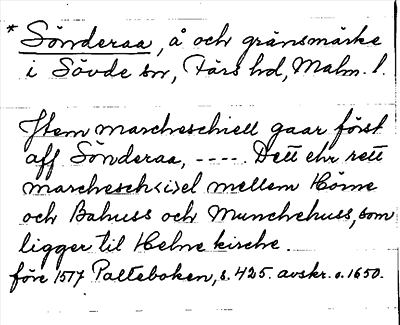 * Sönderaa, å och gränsmärke
i Sövde sn, Färs hd, Malm. l.
Jtem marcheschiell gaar först
aff Sönderaa, ---- Dett ehr rett
marchesch<i>el mellem Hörne
och Bahuss och Munchehuss, som
ligger til Helne kirche.
före 1517 Palteboken, s. 425. avskr. o. 1650.